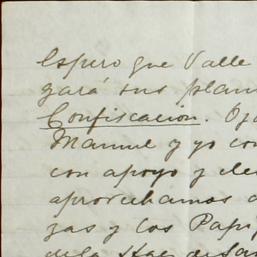 Espero que Valle
gará sus plan
Confiscacion. Oja
Manuel y yo con
con apoyo y ele
aprovechamos a
zas y los Papi
de la Hac de